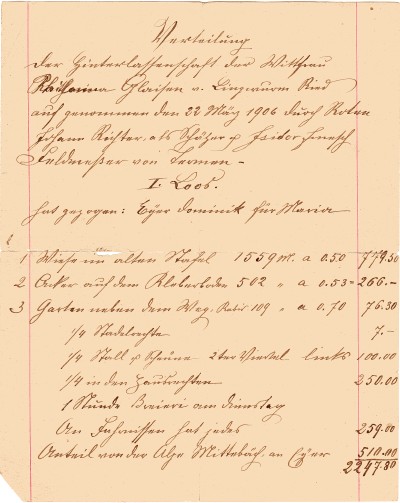 Verteilung
der Hinterlassenschaft der Wittfrau
Katharina v. Ried
auf genommen den 22 März 1906 durch
Johann Richter, als Schäzer u Isidor
Feldmeßer von Termen -
I. Loos.
hat gezogen: Eyer Dominik für Maria
1 Wiese im alten Stafel 1559 m. a 0.50 779.50
2 Acker auf dem 502 " a 0.53 = 266.-
3 Garten neben dem Weg, 109 " a 0.70 76.30
1/4 Stadelrechte 7.-
1/4 Stall u Scheune 2ter Viertel links 100.00
1/4 in den Hausrechten 250.00
1 Stunde am Dinstag
An Fahrnissen hat jedes 259.00
Anteil von der Alpe Mittebäch. an Eyer 510.00
2247.80